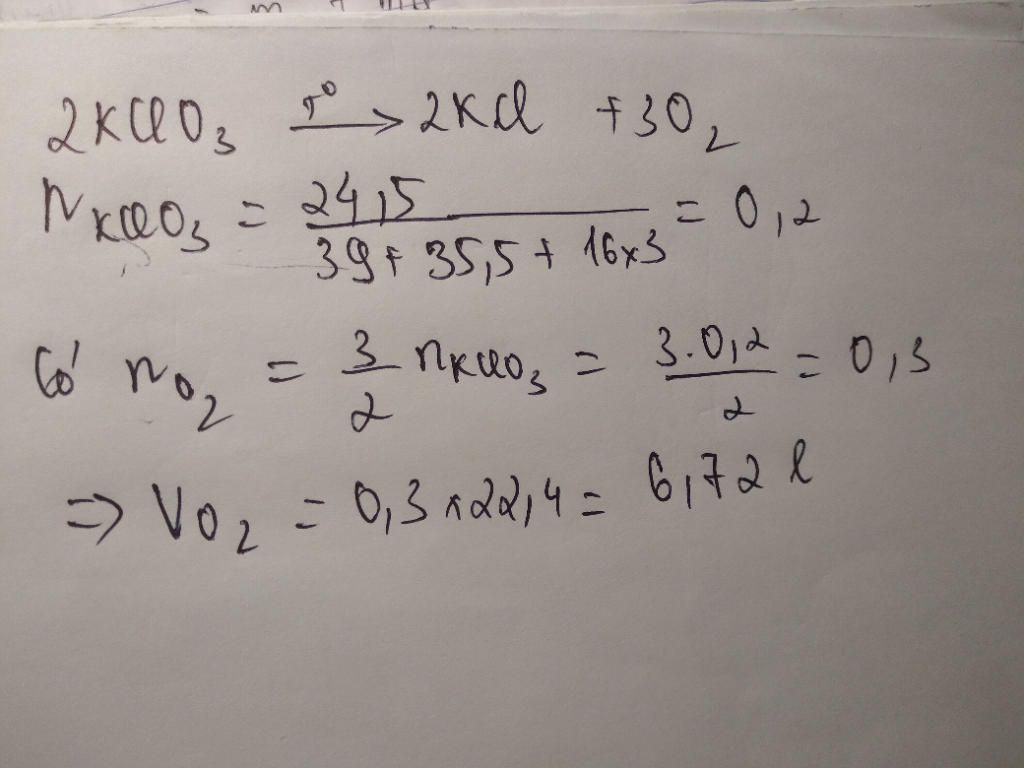 2KClO₃ —t⁰→ 2KCl + 3O₂
n KClO₃ = 24,5 / (39 + 35,5 + 16x3) = 0,2
Có n O₂ = 3/2 n KClO₃ = 3.0,2 / 2 = 0,3
=> V O₂ = 0,3 x 22,4 = 6,72 l